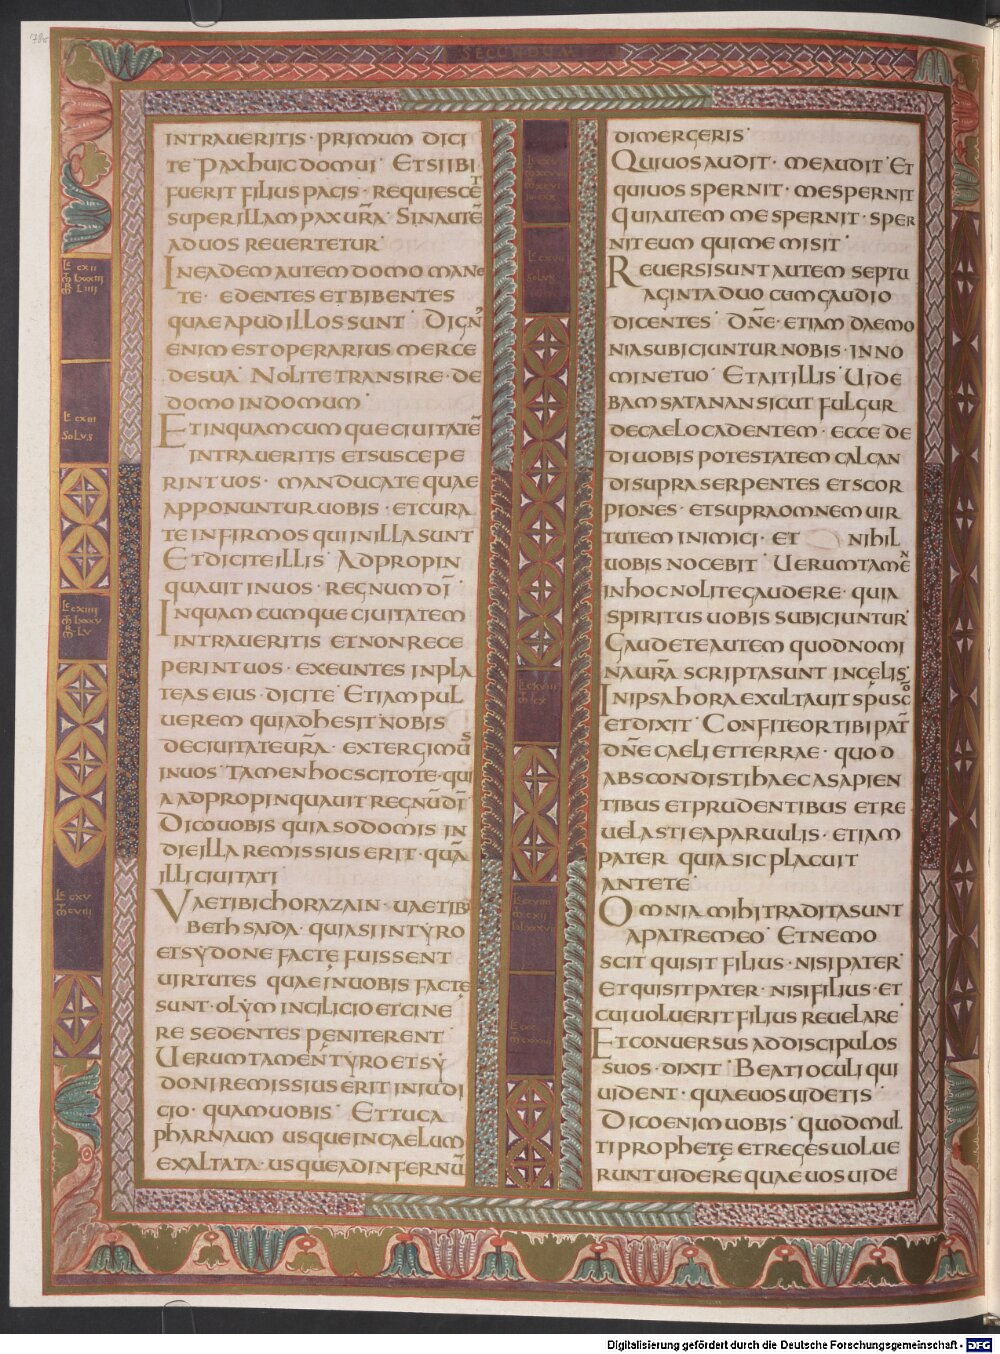 SECUNDUM
INTRAUERITIS · PRIMUM DICI
TE PAX HUIC DOMUI · ET SI IBI
FUERIT FILIUS PACIS · REQUIESCET
SUPER ILLAM PAX UR̄A · SIN AUTĒ
AD UOS REUERTETUR ·
IN EADEM AUTEM DOMO MANE
TE · EDENTES ET BIBENTES
QUAE APUD ILLOS SUNT · DIGN
ENIM EST OPERARIUS MERCE
DE SUA · NOLITE TRANSIRE · DE
DOMO IN DOMUM ·
ET IN QUAM CUMQUE CIUITATĒ
INTRAUERITIS ET SUSCEPE
RINT UOS · MANDUCATE QUAE
APPONUNTUR UOBIS · ET CURA
TE INFIRMOS QUI IN ILLA SUNT
ET DICITE ILLIS · ADPROPIN
QUAUIT IN UOS · REGNUM DĪ ·
IN QUAM CUMQUE CIUITATEM
INTRAUERITIS ET NON RECE
PERINT UOS · EXEUNTES IN PLA
TEAS EIUS · DICITE · ETIAM PUL
UEREM QUI ADHESIT NOBIS
DE CIUITATE UR̄A · EXTERGIMUS
IN UOS · TAMEN HOC SCITOTE · QUI
A ADPROPINQUAUIT REGNŪ DĪ ·
DICO UOBIS QUIA SODOMIS IN
DIE ILLA REMISSIUS ERIT · QUĀ
ILLI CIUITATI ·
VAE TIBI CHORAZAIN · UAE TIBI
BETHSAIDA · QUIA SI IN TYRO
ET SYDONE FACTĘ FUISSENT
UIRTUTES QUAE IN UOBIS FACTĘ
SUNT · OLYM IN CILICIO ET CINE
RE SEDENTES PENITERENT ·
UERUM TAMEN TYRO ET SY
DONI REMISSIUS ERIT IN IUDI
CIO · QUAM UOBIS · ET TU CA
PHARNAUM USQUE IN CAELUM
EXALTATA · USQUE AD INFERNŪ
DIMERGERIS ·
QUI UOS AUDIT · ME AUDIT · ET
QUI UOS SPERNIT · ME SPERNIT
QUI AUTEM ME SPERNIT · SPER
NIT EUM QUI ME MISIT ·
REUERSI SUNT AUTEM SEPTU
AGINTA DUO CUM GAUDIO
DICENTES · DN̄E · ETIAM DAEMO
NIA SUBICIUNTUR NOBIS · IN NO
MINE TUO · ET AIT ILLIS · UIDE
BAM SATANAN SICUT FULGUR
DE CAELO CADENTEM · ECCE DE
DI UOBIS POTESTATEM CALCAN
DI SUPRA SERPENTES ET SCOR
PIONES · ET SUPRA OMNEM UIR
TUTEM INIMICI · ET NIHIL
UOBIS NOCEBIT · UERUM TAMEN
IN HOC NOLITE GAUDERE · QUIA
SPIRITUS UOBIS SUBICIUNTUR ·
GAUDETE AUTEM QUOD NOMI
NA UR̄A SCRIPTA SUNT IN CĘLIS ·
IN IPSA HORA EXULTAUIT SPU SCO
ET DIXIT · CONFITEOR TIBI PAT̄
DN̄E CAELI ET TERRAE · QUOD
ABSCONDISTI HAEC A SAPIEN
TIBUS ET PRUDENTIBUS ET RE
UELASTI EA PARUULIS · ETIAM
PATER QUIA SIC PLACUIT
ANTE TE ·
OMNIA MIHI TRADITA SUNT
A PATRE MEO · ET NEMO
SCIT QUI SIT FILIUS · NISI PATER ·
ET QUI SIT PATER · NISI FILIUS · ET
CUI UOLUERIT FILIUS REUELARE ·
ET CONUERSUS AD DISCIPULOS
SUOS · DIXIT · BEATI OCULI QUI
UIDENT · QUAE UOS UIDETIS ·
DICO ENIM UOBIS · QUOD MUL
TI PROPHETĘ ET REGES UOLUE
RUNT UIDERE QUAE UOS UIDE
LE CXII
LXXXIIII
LIIII
LE CXIII
SOLUS
LE CXIIII
LXXXV
LV
LE CXV
CVIII
Digitalisierung gefördert durch die Deutsche Forschungsgemeinschaft - DFG